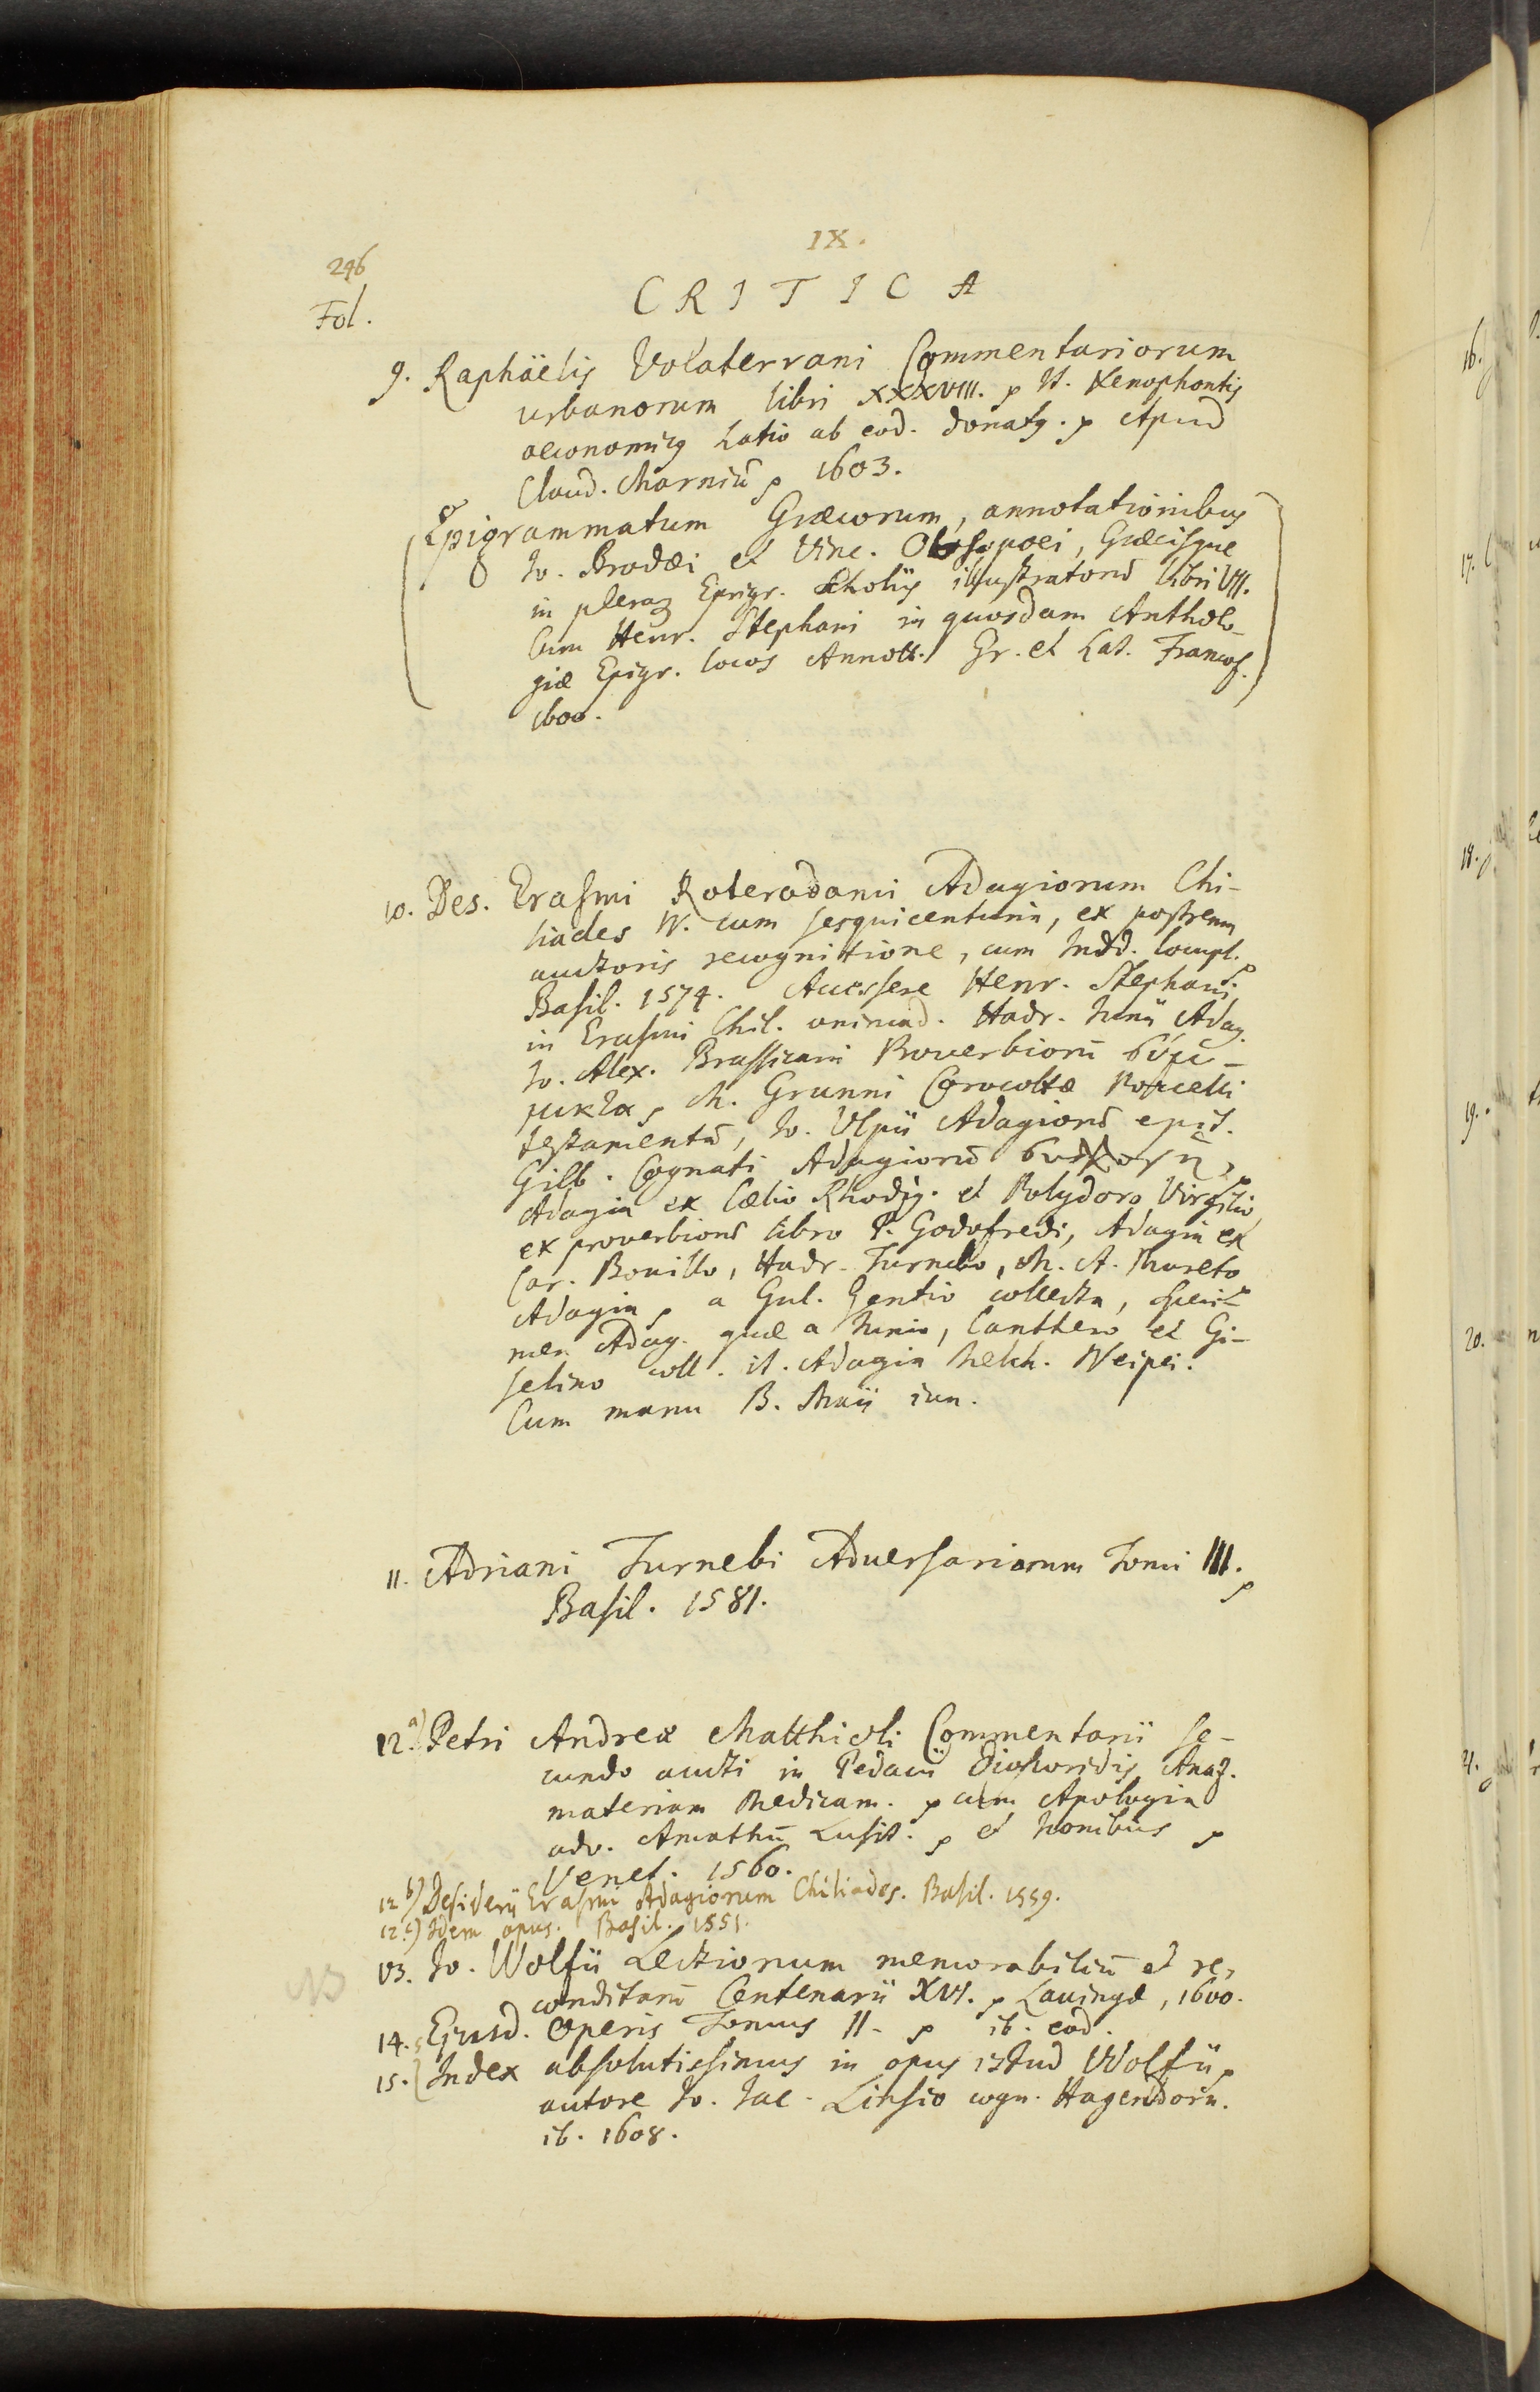 IX.
246
CRITICA
Fol.
9. Raphäelis Volaterrani Commentariorum
urbanorum libri XXXVIII. p It. Xenophontis
oeconomicg Latio ab eod. donatg. p Apud
Claud. Marniū p 1603.
Epigrammatum Græcorum, annotationibus
Io. Brodæi et Vinc. Obsopoei, Græcisque
in pleraq Epigr. scholiis illustratorū libri VII.
Cum Henr. Stephani in quosdam Antholo-
giæ Epigr. locos Annott. Gr. et Lat. Francof.
1600.
10. Des. Erasmi Roterodami Adagiorum Chi-
liades IV. cum sesquicenturia, ex postrema
auctoris recognitione, cum Indd. locupl. p
Basil. 1574. Accessere Henr. Stephani
in Erasmi Chil. animad. Hadr. Iunii Adag.
Io. Alex. Brassicani Proverbiorū σύμ-
μικτα, M. Grunni Corocottæ Porcelli
testamentū, Io. Ulpii Adagiorū epit.
Gilb. Cognati Adagiorū συλλογή,
Adagia ex Cælio Rhodig. et Polydoro Virgilio,
ex proverbiorū libro P. Godofredi, Adagia ex
Car. Bovillo, Hadr. Turnebo, M. A. Mureto
Adagia p a Gul. Gentio collecta, speci-
men Adag. quæ a Iunio, Canthero et Gi-
selino coll. it. Adagia Melch. Neipei.
Cum manu B. Maii iun.
11. Adriani Turnebi Adversariorum Tomi III. p
Basil. 1581.
12.a) Petri Andreæ Matthioli Commentarii se-
cundo aucti in Pedacii Dioscoridis Anaz.
materiam Medicam. p cum Apologia
adv. Amathū Lusit. p et Iconibus p
Venet. 1560.
12 b) Desiderii Erasmi Adagiorum Chiliades. Basil. 1559.
12 c) Idem opus. Basil. 1551.
NB
13. Io. Wolfii Lectionum memorabiliū et re-
conditarū Centenarii XVI. p Lauingæ, 1600.
14. Ejusd. Operis Tomus II. p ib. eod.
15. Index absolutissimus in opus istud Wolfii p
autore Io. Iac. Linsio cogn. Hagendorn.
ib. 1608.
16.
17.
18.
19.
20.
21.